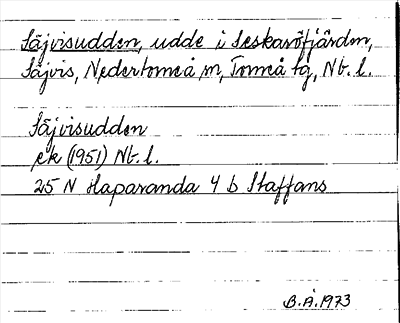 Säjvisudden, udde i Seskaröfjärden,
Säjvis, Nedertorneå sn, Torneå tg, Nb. l.
Säjvisudden
ek (1951) Nb. l.
25 N Haparanda 4 b Staffans
B.Å. 1973